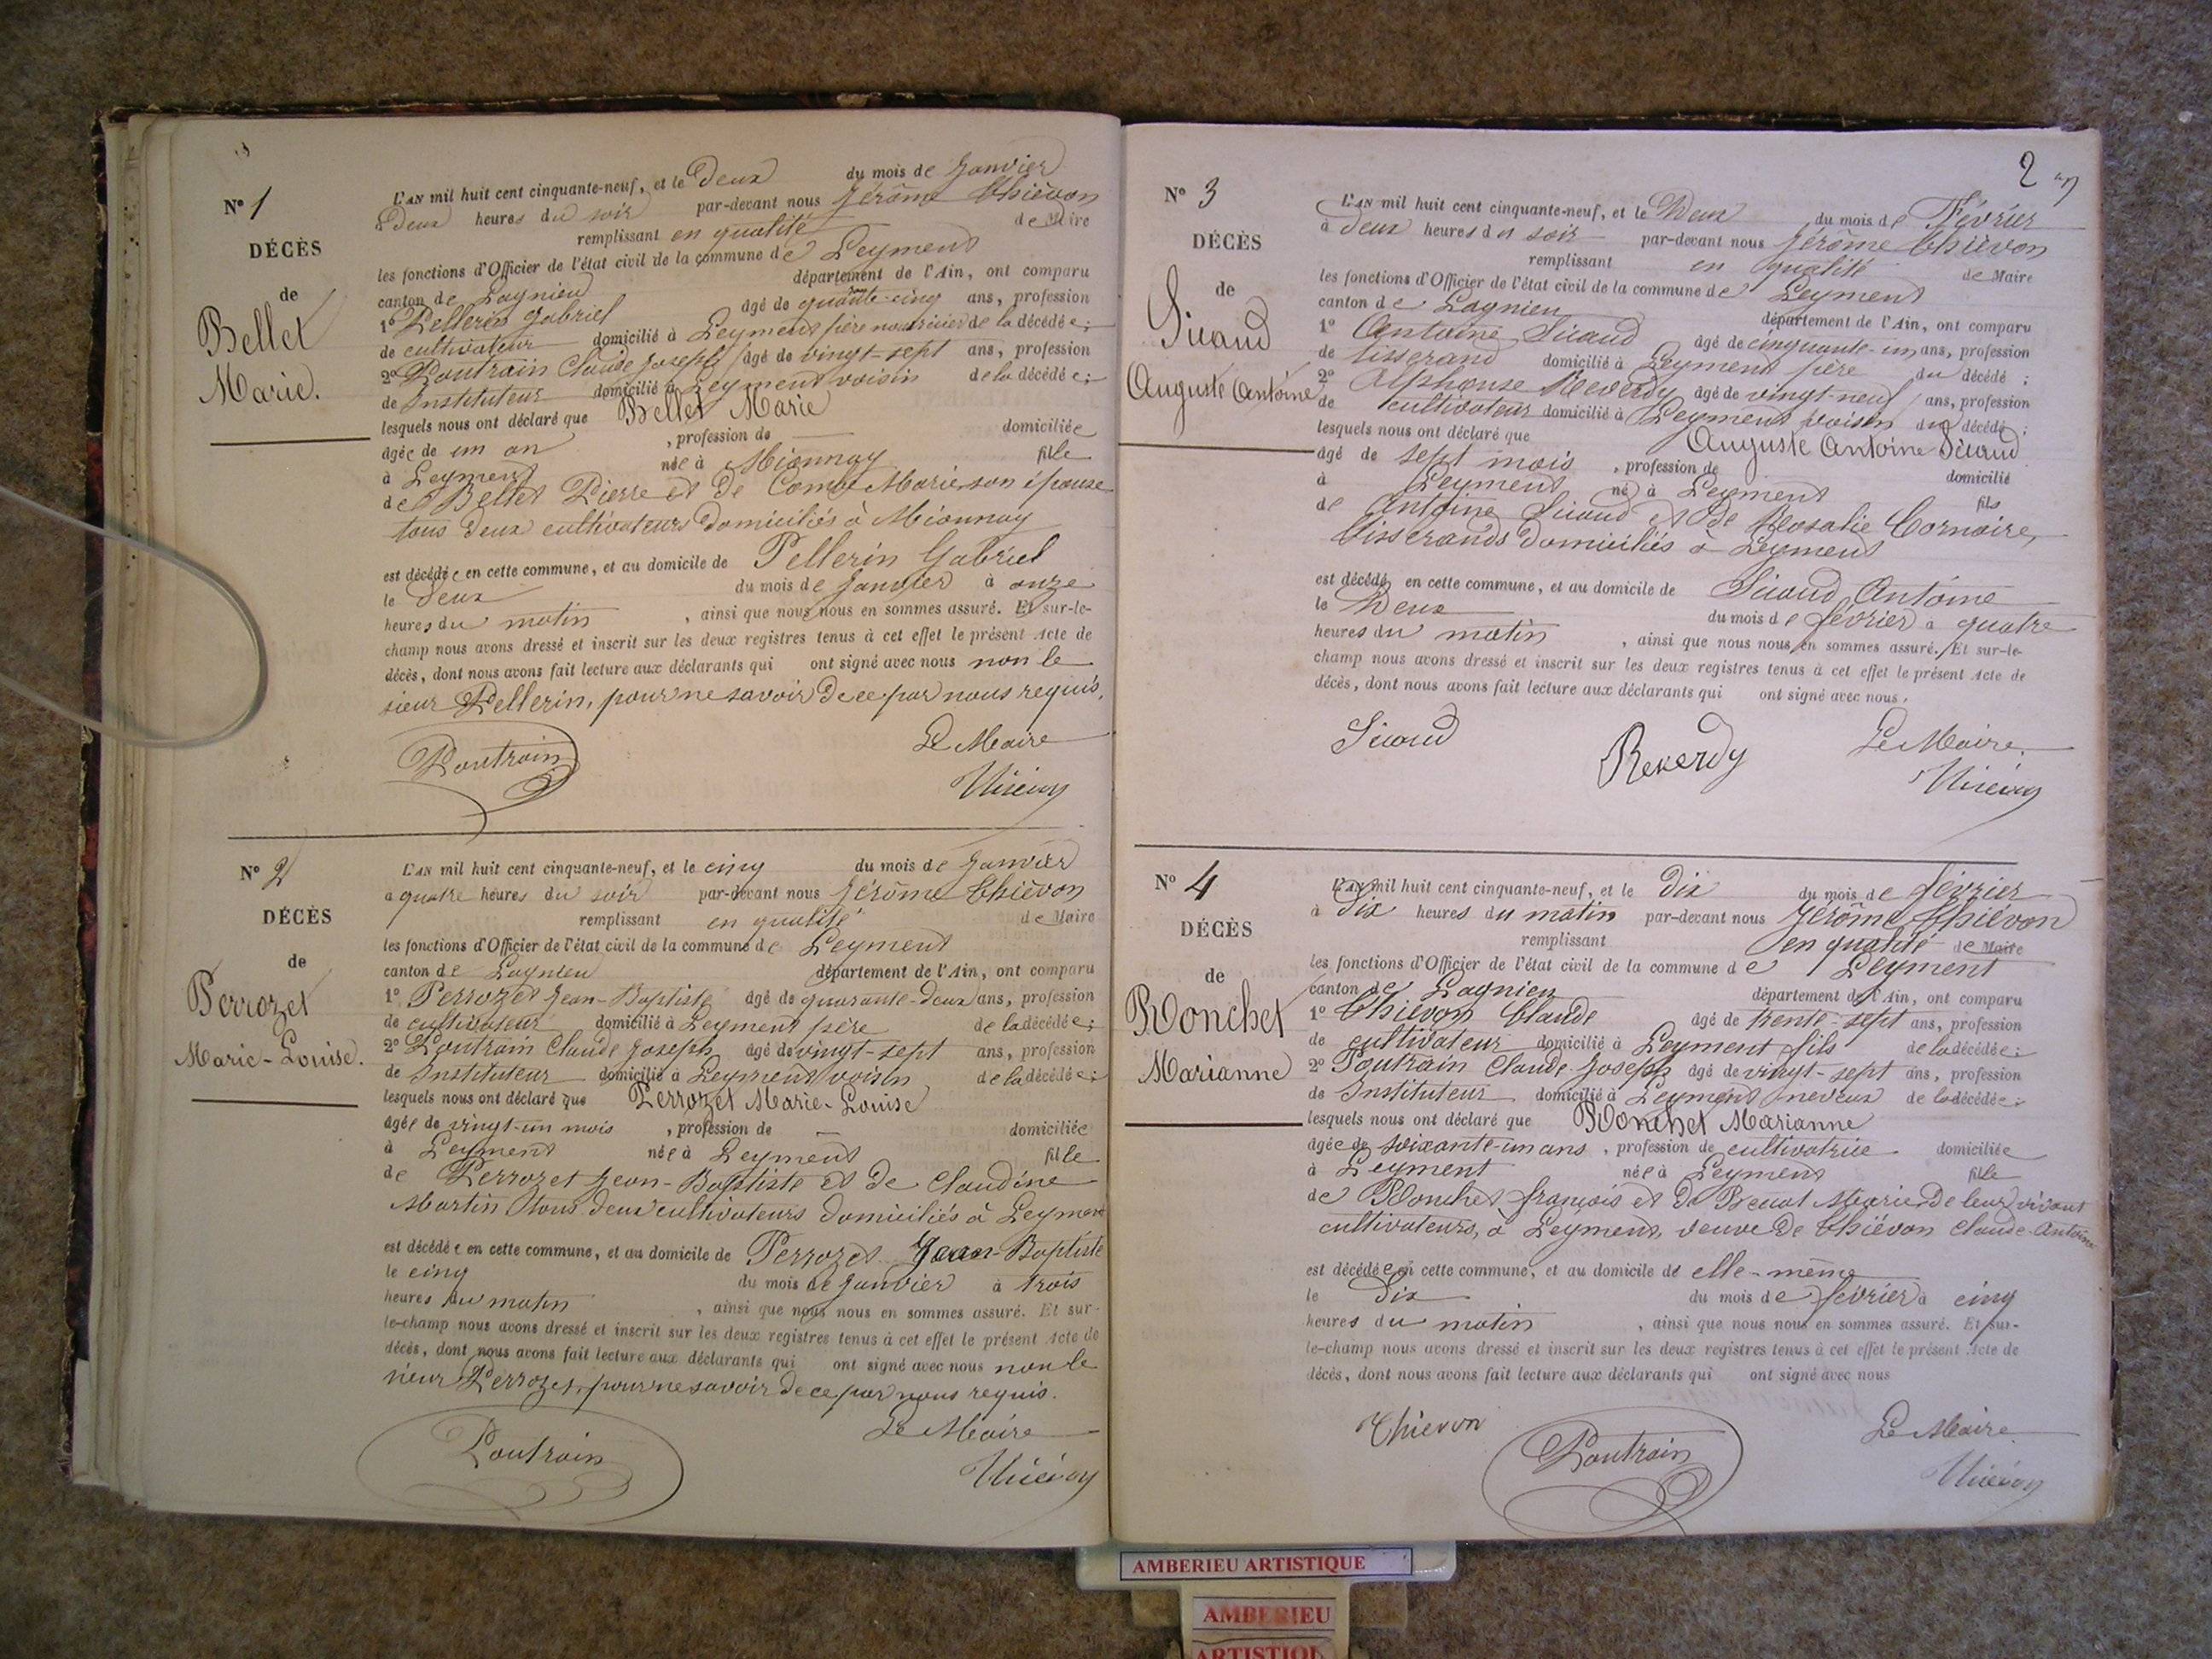 N° 1
DÉCÈS
de
Bellet
Marie.
L'AN mil huit cent cinquante-neuf, et le deux du mois de Janvier
à Deux heures du soir par-devant nous Jérôme Thiévon
remplissant en qualité de Maire
les fonctions d'Officier de l'état civil de la commune de Leyment
canton de Lagnieu département de l'Ain, ont comparu
1° Pellerin Gabriel âgé de quarante-cinq ans, profession
de cultivateur domicilié à Leyment père nourricier de la décédée;
2° Poutrain Claude Joseph âgé de vingt-sept ans, profession
de Instituteur domicilié à Leyment voisin de la décédée;
lesquels nous ont déclaré que Bellet Marie
âgée de un an , profession de — domiciliée
à Leyment née à Mionnay fille
de Bellet Pierre et de Marie son épouse
tous deux cultivateurs domiciliés à Mionnay
est décédée en cette commune, et au domicile de Pellerin Gabriel
le deux du mois de Janvier à onze
heures du matin , ainsi que nous nous en sommes assuré. Et sur-le-
champ nous avons dressé et inscrit sur les deux registres tenus à cet effet le présent Acte de
décès, dont nous avons fait lecture aux déclarants qui ont signé avec nous non le
sieur Pellerin, pour ne savoir de ce par nous requis.
Poutrain
Le Maire
Thiévon
N° 2
DÉCÈS
de
Perrozet
Marie-Louise.
L'AN mil huit cent cinquante-neuf, et le cinq du mois de Janvier
à quatre heures du soir par-devant nous Jérôme Thiévon
remplissant en qualité de Maire
les fonctions d'Officier de l'état civil de la commune de Leyment
canton de Lagnieu département de l'Ain, ont comparu
1° Perrozet Jean-Baptiste âgé de quarante-deux ans, profession
de cultivateur domicilié à Leyment père de la décédée;
2° Poutrain Claude Joseph âgé de vingt-sept ans, profession
de Instituteur domicilié à Leyment voisin de la décédée;
lesquels nous ont déclaré que Perrozet Marie-Louise
âgée de vingt-un mois , profession de — domiciliée
à Leyment née à Leyment fille
de Perrozet Jean-Baptiste et de Claudine
Martin tous deux cultivateurs domiciliés à Leyment
est décédée en cette commune, et au domicile de Perrozet Jean-Baptiste
le cinq du mois de Janvier à trois
heures du matin , ainsi que nous nous en sommes assuré. Et sur-
le-champ nous avons dressé et inscrit sur les deux registres tenus à cet effet le présent Acte de
décès, dont nous avons fait lecture aux déclarants qui ont signé avec nous non le
sieur Perrozet, pour ne savoir de ce par nous requis.
Poutrain
Le Maire
Thiévon
2
N° 3
DÉCÈS
de
Sicaud
Auguste Antoine
L'AN mil huit cent cinquante-neuf, et le Deux du mois de Février
à deux heures du soir par-devant nous Jérôme Thiévon
remplissant en qualité de Maire
les fonctions d'Officier de l'état civil de la commune de Leyment
canton de Lagnieu département de l'Ain, ont comparu
1° Antoine Sicaud âgé de cinquante-un ans, profession
de tisserand domicilié à Leyment père du décédé;
2° Alphonse Reverdy âgé de vingt-neuf ans, profession
de cultivateur domicilié à Leyment voisin du décédé;
lesquels nous ont déclaré que Auguste Antoine Sicaud
âgé de sept mois , profession de domicilié
à Leyment né à Leyment fils
de Antoine Sicaud et de Rosalie Cornaire,
tisserands domiciliés à Leyment
est décédé en cette commune, et au domicile de Sicaud Antoine
le Deux du mois de février à quatre
heures du matin , ainsi que nous nous en sommes assuré. Et sur-le-
champ nous avons dressé et inscrit sur les deux registres tenus à cet effet le présent Acte de
décès, dont nous avons fait lecture aux déclarants qui ont signé avec nous.
Sicaud
Reverdy
Le Maire.
Thiévon
N° 4
DÉCÈS
de
Ronchet
Marianne
L'AN mil huit cent cinquante-neuf, et le dix du mois de février
à dix heures du matin par-devant nous Jérôme Thiévon
remplissant en qualité de Maire
les fonctions d'Officier de l'état civil de la commune de Leyment
canton de Lagnieu département de l'Ain, ont comparu
1° Thiévon Claude âgé de trente-sept ans, profession
de cultivateur domicilié à Leyment fils de la décédée;
2° Poutrain Claude-Joseph âgé de vingt-sept ans, profession
de Instituteur domicilié à Leyment neveux de la décédée;
lesquels nous ont déclaré que Ronchet Marianne
âgée de soixante-un ans , profession de cultivatrice domiciliée
à Leyment née à Leyment fille
de Ronchet françois et de Marie de leur vivant
cultivateurs, à Leyment, veuve de Thiévon Claude-Antoine
est décédée en cette commune, et au domicile de elle-même
le Dix du mois de février à cinq
heures du matin , ainsi que nous nous en sommes assuré. Et sur-
le-champ nous avons dressé et inscrit sur les deux registres tenus à cet effet le présent Acte de
décès, dont nous avons fait lecture aux déclarants qui ont signé avec nous
Thievon
Poutrain
Le Maire
Thiévon
AMBERIEU ARTISTIQUE
AMBERIEU
ARTISTIQU